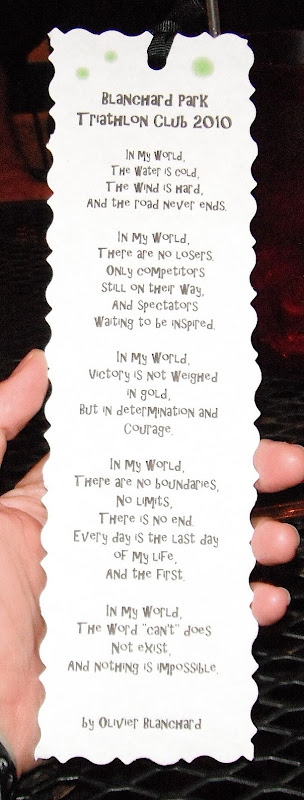 Blanchard Park
Triathlon Club 2010
In My World,
The Water is cold,
The Wind is Hard,
And the road never ends.
In My World,
There are no losers.
Only competitors
Still on their Way,
And Spectators
Waiting to be inspired.
In My World,
Victory is Not Weighed
in gold,
But in determination and
Courage.
In My World,
There are no boundaries,
No Limits,
There is no end.
Every day is the last day
of My Life,
And the First.
In My World,
The Word "can't" does
Not exist,
And nothing is impossible.
by Olivier Blanchard